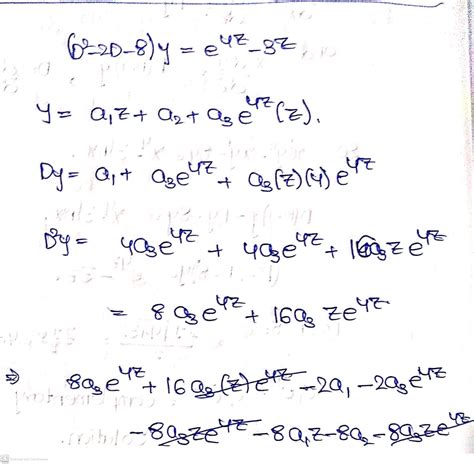 (D²-2D-8)y = e^4z - 3z
y = a₁z + a₂ + a₃e^4z(z).
Dy = a₁ + a₃e^4z + a₃(z)(4)e^4z
D²y = 4a₃e^4z + 4a₃e^4z + 16a₃ze^4z
= 8a₃e^4z + 16a₃ ze^4z.
⇒ 8a₃e^4z + 16a₃(z)e^4z - 2a₁ - 2a₃e^4z
- 8a₃ze^4z - 8a₁z - 8a₂ - 8a₃ze^4z